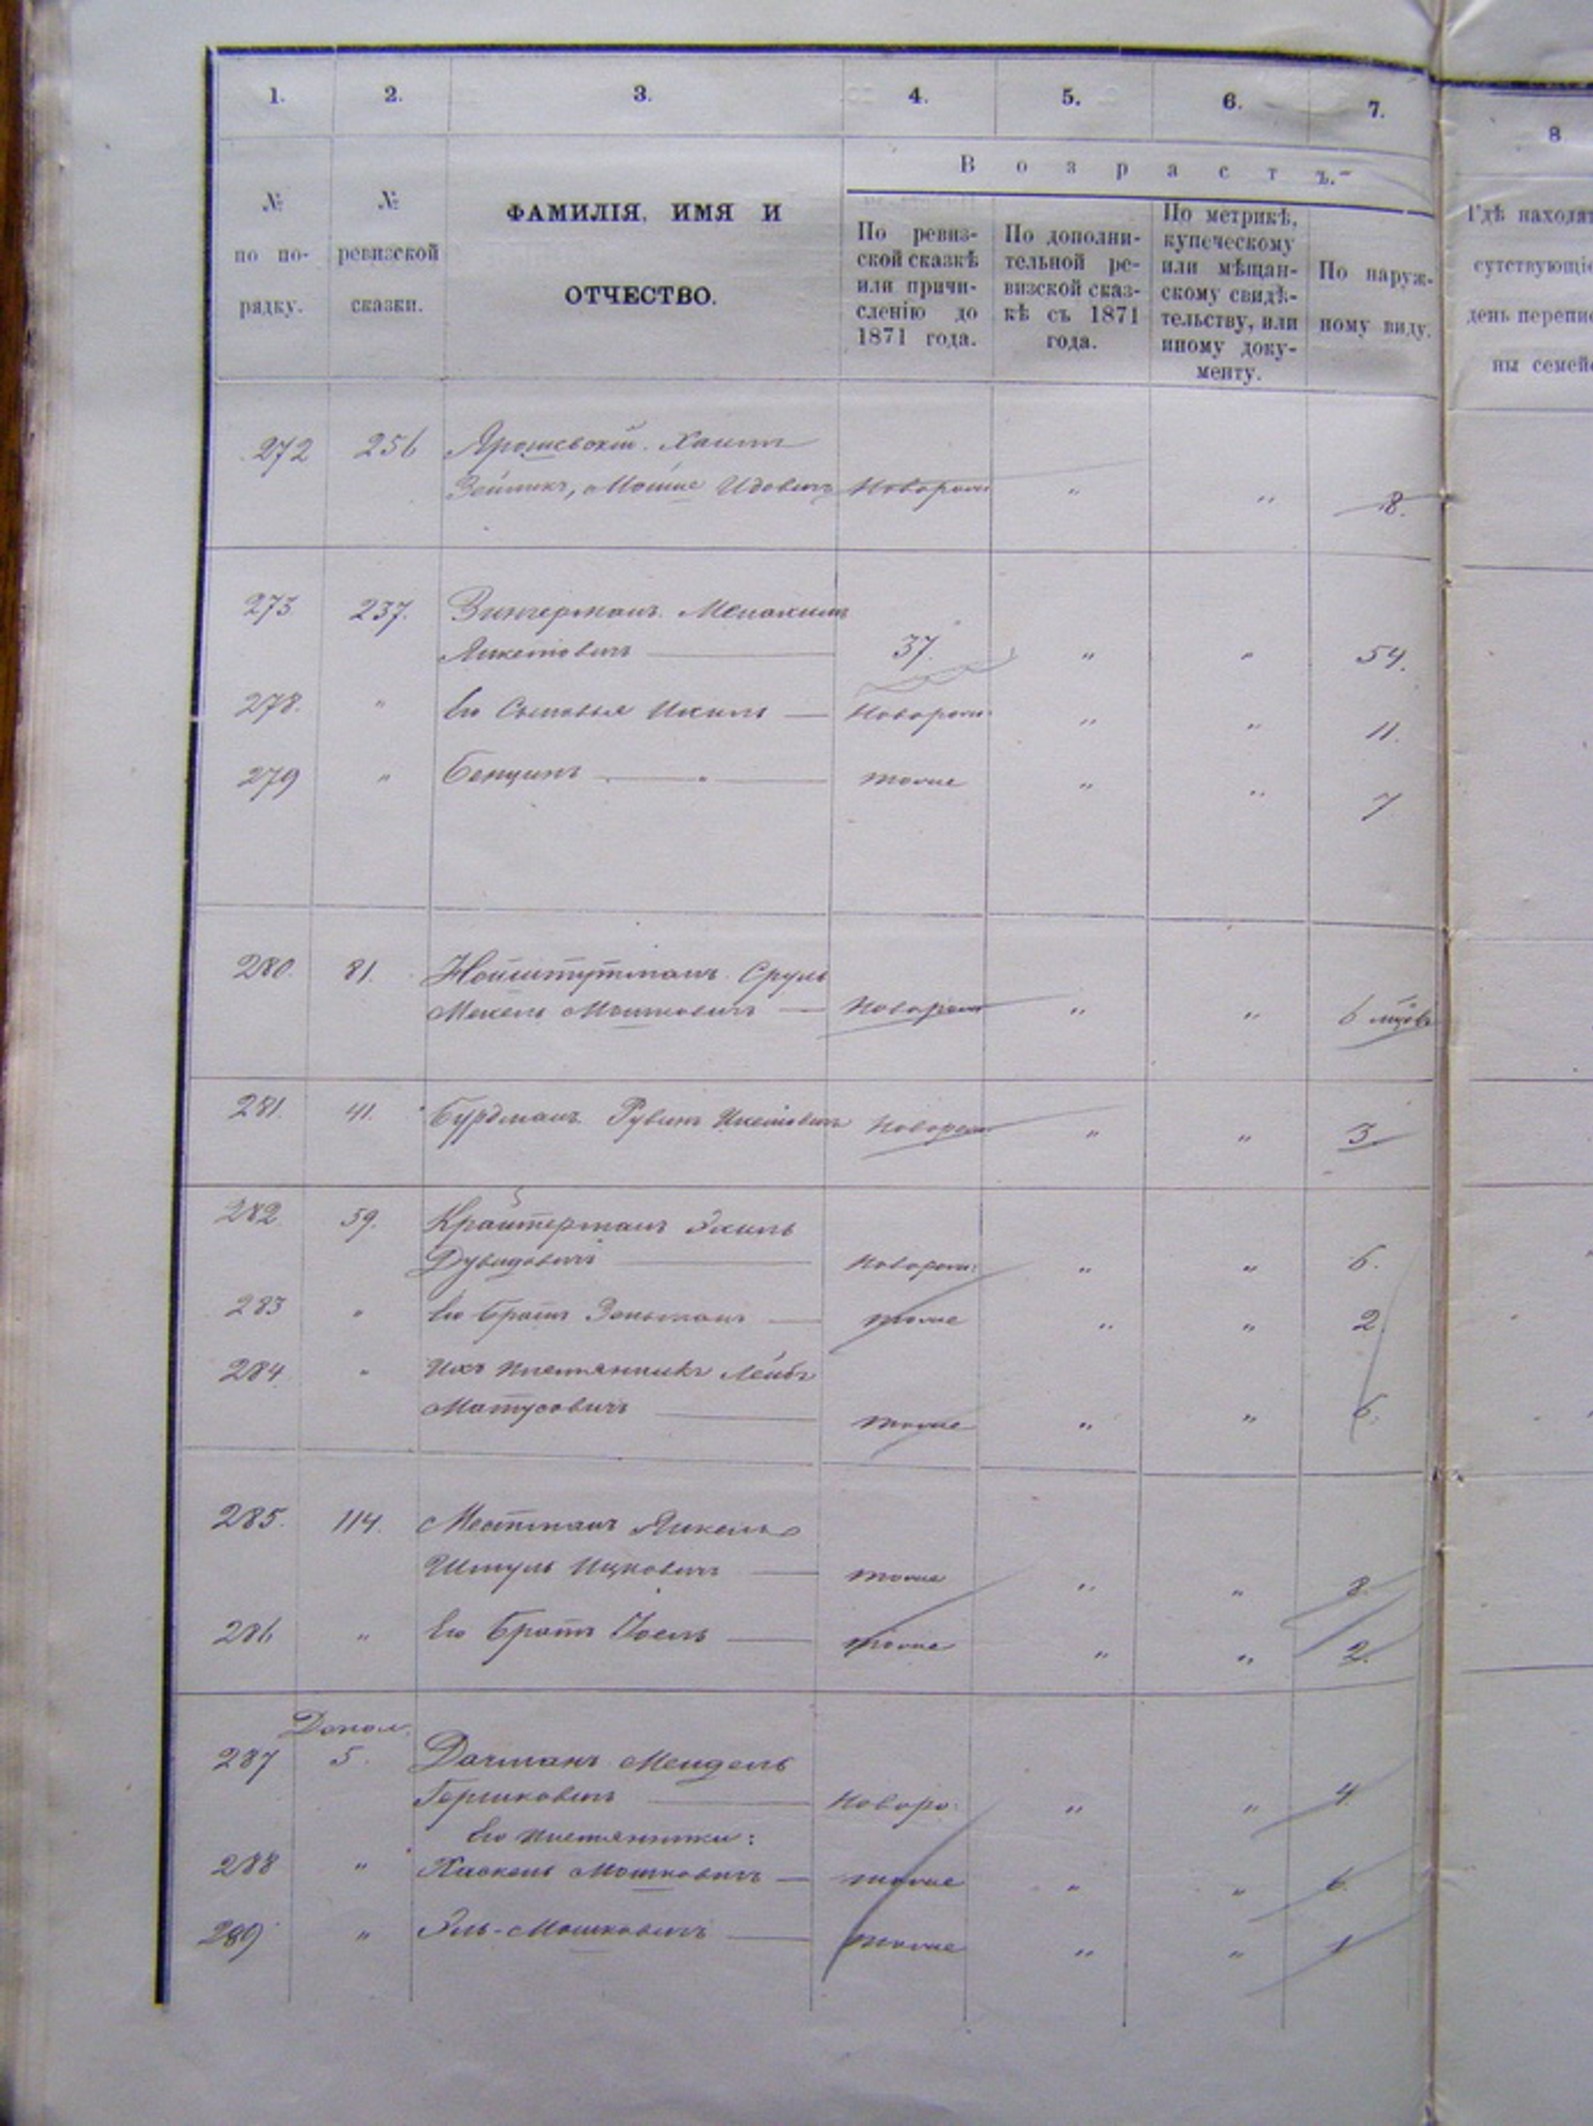 1. 2. 3. 4. 5. 6. 7. 8
В о з р а с т ъ.
№ по по- рядку.
№ ревизской сказки.
ФАМИЛІЯ, ИМЯ И
ОТЧЕСТВО.
По ревиз-
ской сказкѣ
или причи-
сленію до
1871 года.
По дополни-
тельной ре-
визской сказ-
кѣ съ 1871
года.
По метрикѣ,
купеческому
или мѣщан-
скому свидѣ-
тельству, или
иному доку-
менту.
По наруж-
ному виду.
Гдѣ находят
сутствующіе
день перепис
ны семей
272 256 Ярошевскій Хаимъ
Зейликъ, Мошке Идовичъ Новорож " " 8.
273 237. Зингерманъ Менахимъ
Янкелiовичъ 37. " " 54.
278. " Его Сыновья Ихилъ Новорож " " 11.
279 " Бенционъ " тоже " " 7
280. 81. Нойштутманъ Сруль
Мехель Мошковичъ Новорож " " 6 мцовъ
281. 41. Бурдманъ Рувинъ Икелiовичъ Новорож " " 3
282 59. Крайтерманъ Эхиль
Дувидовичъ Новорож: " " 6.
283 " Его братъ Зельманъ тоже " " 2
284 " Ихъ племянникъ Лейбъ
Матусовичъ тоже " " 6.
285. 114. Меатманъ Янкель
Шмуль Ицковичъ тоже " " 8.
286 " Его братъ Іоель тоже " " 2.
Допол.
287 5. Дачманъ Мендель
Гершковичъ Новоро: " " 4
Его племянники:
288 " Хаскель Мошковичъ тоже " " 6.
289 " Эль-Мошковичъ тоже " " 1